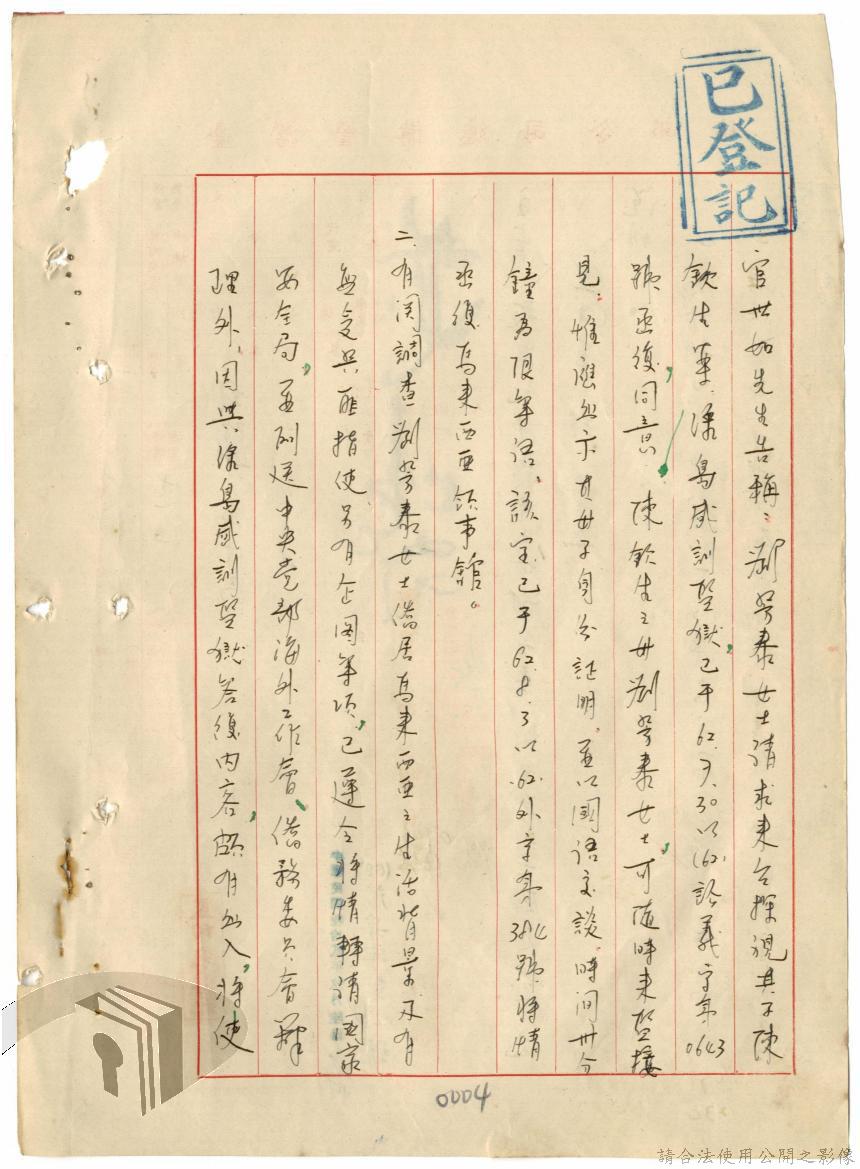 已登記
官世如先生告稱：劉琴泰女士請求來台探視其子陳
欽生華，綠島感訓監獄，已于62.7.30以(62)設義字第0643
號函復同意，陳欽生之母劉琴泰女士，可隨時來監接
見，惟應出示其母子身分証明，並以國語交談，時間卅分
鐘為限等語，該室已于62.8.3以.62.外字第384號將情
函復馬來西亞領事館。
二、有関調查劉琴泰女士僑居馬來西亞之生活背景及有
無受共匪指使另有企圖等項，已遵令將情轉請國家
安全局，並副送中央党部海外工作會、僑務委員會辦
理外，因與綠島感訓監獄答復內容，頗有出入，將使
0004
請合法使用公開之影像